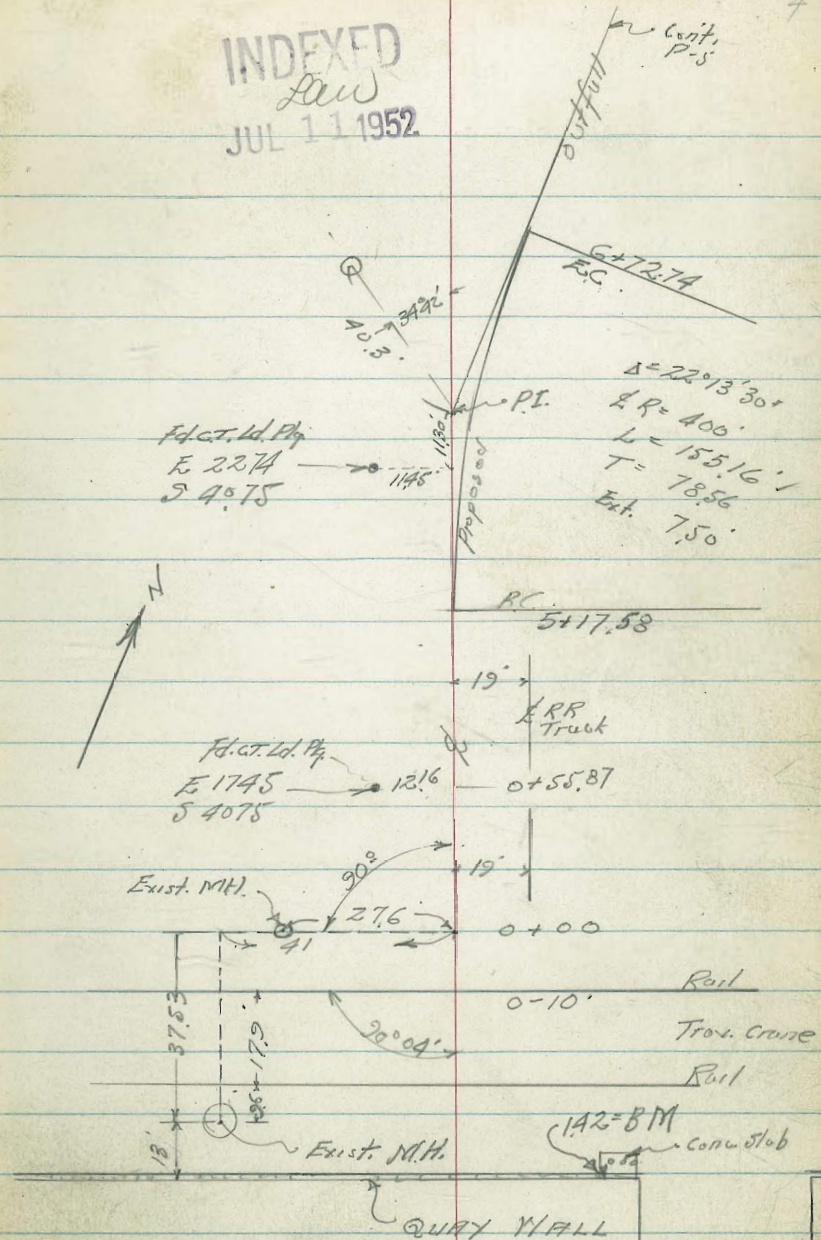 INDEXED
Law
JUL 11 1952
Cont.
P-5
Outfall
6+72.74
E.C.
34°42'
40.3'
P.I.
11.30'
Δ= 22°13'30"
℄ R= 400'
L = 155.16'
T = 78.56
Ext. 7.50'
Fd.C.T. Ld. Plg
E 2274
S 4075
11.45'
Proposed
N
B.C.
5+17.58
19'
℄ RR
Track
Fd.C.T. Ld. Plg.
E 1745
S 4075
12.16
0+55.87
90°
19'
Exist. M.H.
27.6
0+00
41
37.53
17.9'
Rail
0-10'
90°04'
Trav. Crane
Rail
18'
Exist. M.H.
1.42=BM
Conc Slab
QUAY WALL